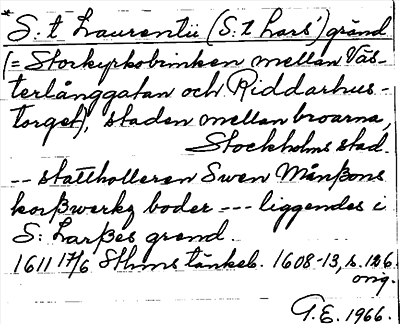 * S:t Laurentii (S:t Lars') gränd
(= Storkyrkobrinken mellan Väs-
terlånggatan och Riddarhus-
torget), staden mellan broarna,
Stockholms stad.
-- stattholleren Swen Månßons
korßwerkz boder --- liggendes i
S: Larßes grend.
1611 17/6 Sthms tänkeb. 1608-13, s. 126
orig.
G.E. 1966.